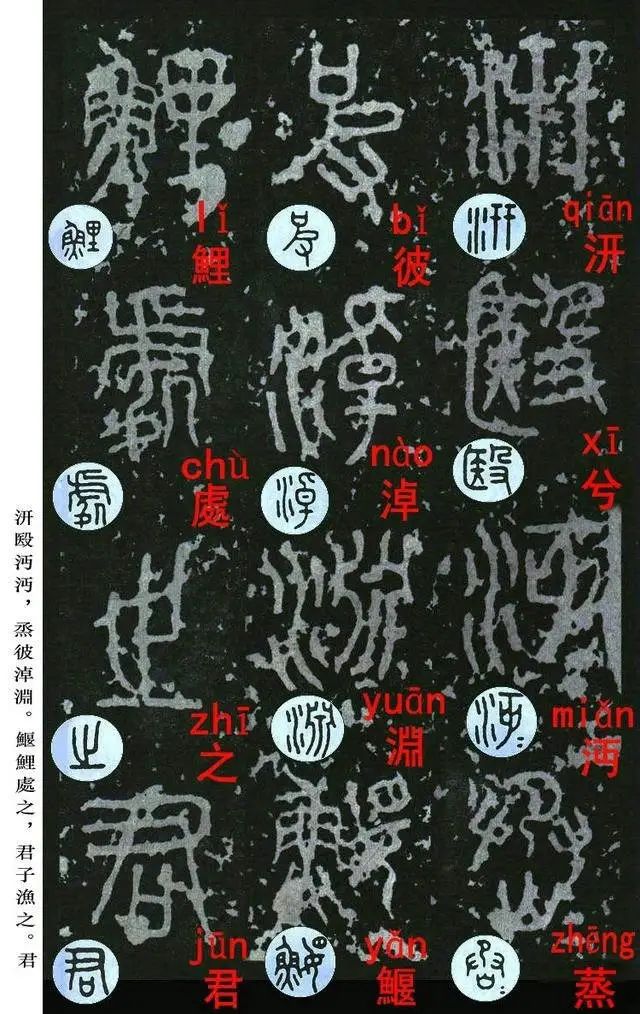 qiān
汧
xī
兮
miǎn
沔
zhēng
蒸
bǐ
彼
nào
淖
yuān
淵
yǎn
鰋
lǐ
鯉
chù
處
zhī
之
jūn
君
汧殹沔沔，蒸彼淖淵。鰋鯉處之，君子漁之。君